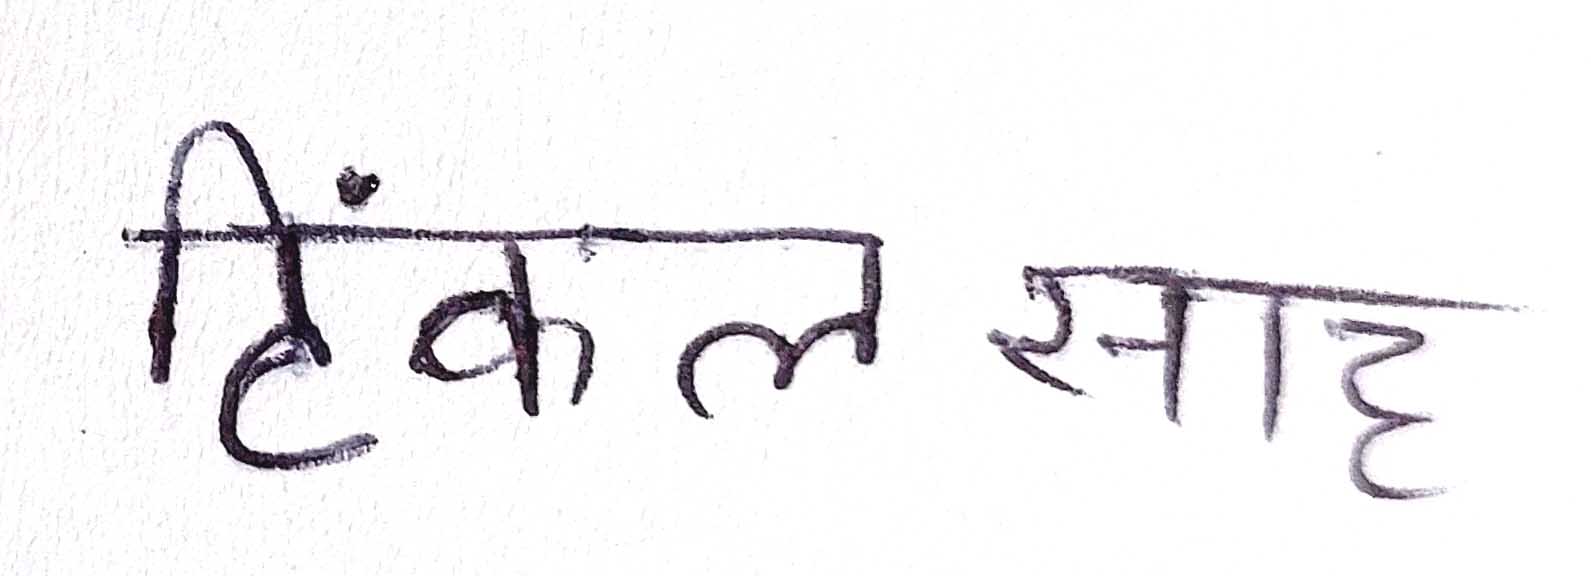 हिंकल साह